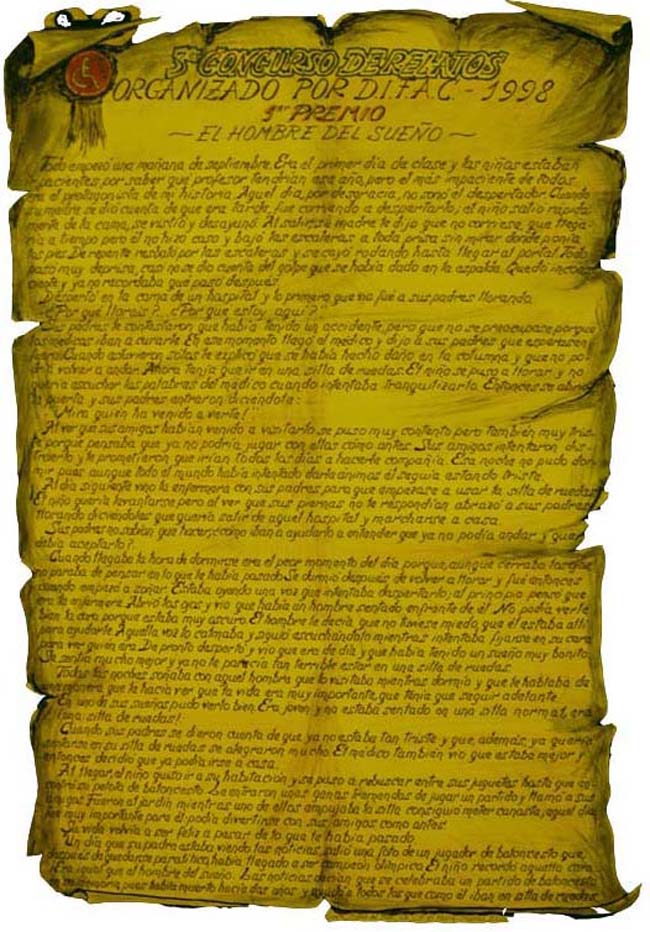 3er CONCURSO DE RELATOS
ORGANIZADO POR D.I.F.A.C. - 1998
1er PREMIO
~ EL HOMBRE DEL SUEÑO ~
Todo empezó una mañana de septiembre. Era el primer día de clase y los niños estaban
pacientes por saber que profesor tendrían ese año, pero el más impaciente de todos
era el protagonista de mi historia. Aquel día, por desgracia, no sonó el despertador. Cuando
su madre se dió cuenta de que era tarde, fue corriendo a despertarlo; el niño salió rapida-
mente de la cama, se vistió y desayunó. Al salir su madre le dijo que no corriese, que llega-
ría a tiempo pero él no hizo caso y bajó las escaleras a toda prisa sin mirar donde ponía
los pies. De repente resbaló por las escaleras y se cayó rodando hasta llegar al portal. Todo
pasó muy deprisa, casi no se dió cuenta del golpe que se había dado en la espalda. Quedó incons-
ciente y ya no recordaba que pasó después.
Despertó en la cama de un hospital y lo primero que vió fué a sus padres llorando.
-¿Por qué lloráis?, ¿Por que estoy aquí?
Sus padres le contestaron que había tenido un accidente, pero que no se preocupase porque
los médicos iban a curarle. En ese momento llegó el médico y dijo a sus padres que esperasen
fuera. Cuando estuvieron solos le explicó que se había hecho daño en la columna y que no po-
dría volver a andar. Ahora tenía que ir en una silla de ruedas. El niño se puso a llorar y no
quería escuchar las palabras del médico cuando intentaba tranquilizarlo. Entonces se abrió
la puerta y sus padres entraron diciendole:
-¡Mira quién ha venido a verte!
Al ver que sus amigos habían venido a visitarlo, se puso muy contento pero también muy tris-
te porque pensaba que ya no podría jugar con ellos como antes. Sus amigos intentaron dis-
traerlo y le prometieron que irían todos los días a hacerle compañía. Esa noche no pudo dor-
mir pues aunque todo el mundo había intentado darle ánimos él seguía estando triste.
Al día siguiente vino la enfermera con sus padres para que empezase a usar la silla de ruedas.
El niño quería levantarse pero al ver que sus piernas no le respondían abrazó a sus padres
llorando diciendoles que quería salir de aquel hospital y marcharse a casa.
Sus padres no sabían que hacer, ¿cómo iban a ayudarlo a entender que ya no podía andar y que
debía aceptarlo?
Cuando llegaba la hora de dormirse era el peor momento del día porque, aunque cerraba los ojos,
no paraba de pensar en lo que le había pasado. Se durmió después de volver a llorar y fué entonces
cuando empezó a soñar. Estaba oyendo una voz que intentaba despertarlo; al principio pensó que
era la enfermera. Abrió los ojos y vio que había un hombre sentado enfrente de él. No podía verle
bien la cara porque estaba muy oscuro. El hombre le decía, que no tuviese miedo, que él estaba allí
para ayudarle. Aquella voz lo calmaba y siguió escuchándolo mientras intentaba fijarse en su cara
para ver quien era. De pronto despertó y vio que era de día y que había tenido un sueño muy bonito.
Se sentía mucho mejor y ya no le parecía tan terrible estar en una silla de ruedas.
Todas las noches soñaba con aquel hombre que lo visitaba mientras dormía y que le hablaba de
una manera que le hacía ver que la vida era muy importante, que tenía que seguir adelante.
En uno de sus sueños pudo verlo bien. Era joven y no estaba sentado en una silla normal, era
¡una silla de ruedas!.
Cuando sus padres se dieron cuenta de que ya no estaba tan triste y que, además, ya quería
sentarse en su silla de ruedas se alegraron mucho. El médico también vio que estaba mejor y
entonces decidió que ya podía irse a casa.
Al llegar, el niño quiso ir a su habitación y se puso a rebuscar entre sus juguetes hasta que en-
contró su pelota de baloncesto. Le entraron unas ganas tremendas de jugar un partido y llamó a sus
amigos. Fueron al jardín mientras uno de ellos empujaba la silla consiguió meter canasta, aquel día
fue muy importante para él: podía divertirse con sus amigos como antes.
La vida volvía a ser feliz a pesar de lo que le había pasado.
Un día que su padre estaba viendo las noticias salió una foto de un jugador de baloncesto que,
después de quedarse paralítico, había llegado a ser campeón olímpico. El niño recordó aquella cara
Era igual que el hombre del sueño. Las noticias decían que se celebraba un partido de baloncesto
en su memoria, pues había muerto hacía dos años y ayudó a todos los que como él iban en silla de ruedas.